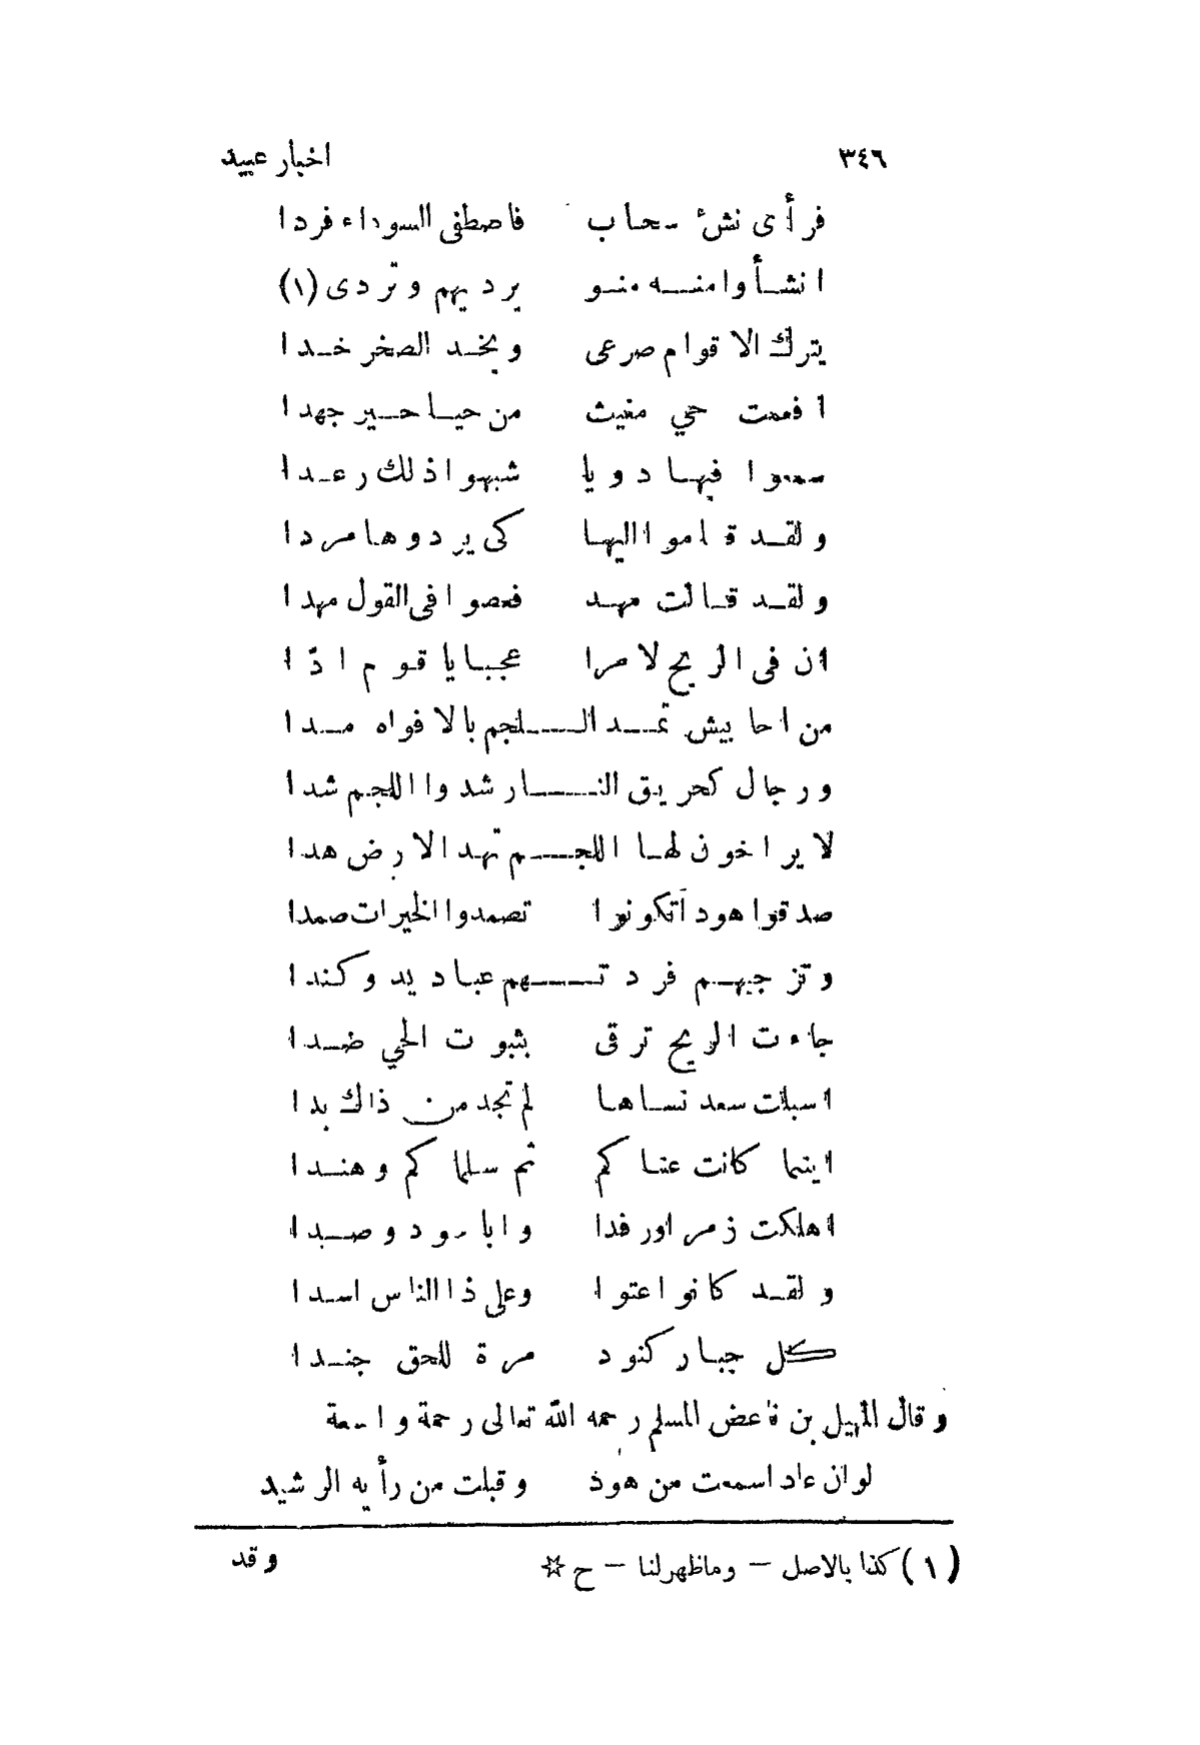 ٣٤٦ اخبار عبيد
فرأى نشئ سحاب فاصطفى السوداء فردا
انشأوا منه منو يرديهم وتردى (١)
يترك الاقوام صرعى ويخد الصخر خدا
افعمت حي مغيث من حيا حير جهدا
سمعوا فيها دويا شبهوا ذلك رعدا
ولقد قاموا اليها كى يردوها مردا
ولقد قالت مهد فعصوا فى القول مهدا
ان فى الريح لامرا عجبا يا قوم ادّا
من احابيش تمد اللجم بالافواه مدا
ورجال كحريق النار شدوا اللجم شدا
لا يراخون لها اللجم تهد الارض هدا
صدقوا هودا تكونوا تصمدوا الخيرات صمدا
وتزجيهم فردتهم عباديد وكندا
جاءت الريح ترقى بثبوت الحي ضدا
اسبلت سعد نساها لم تجد من ذاك بدا
اينما كانت عناكم ثم سلماكم وهندا
اهلكت زمرا ورفدا وابا سود وصبدا
ولقد كانوا عتوا وعلى ذا الناس اسدا
كل جبار كنود مرة للحق جندا
وقال المهيل بن فاعض المسلم رحمه الله تعالى رحمة واسعة
لو ان عاد اسمعت من هود وقبلت من رأيه الرشيد
(١) كذا بالاصل – وماظهرلنا – ح ☆ وقد